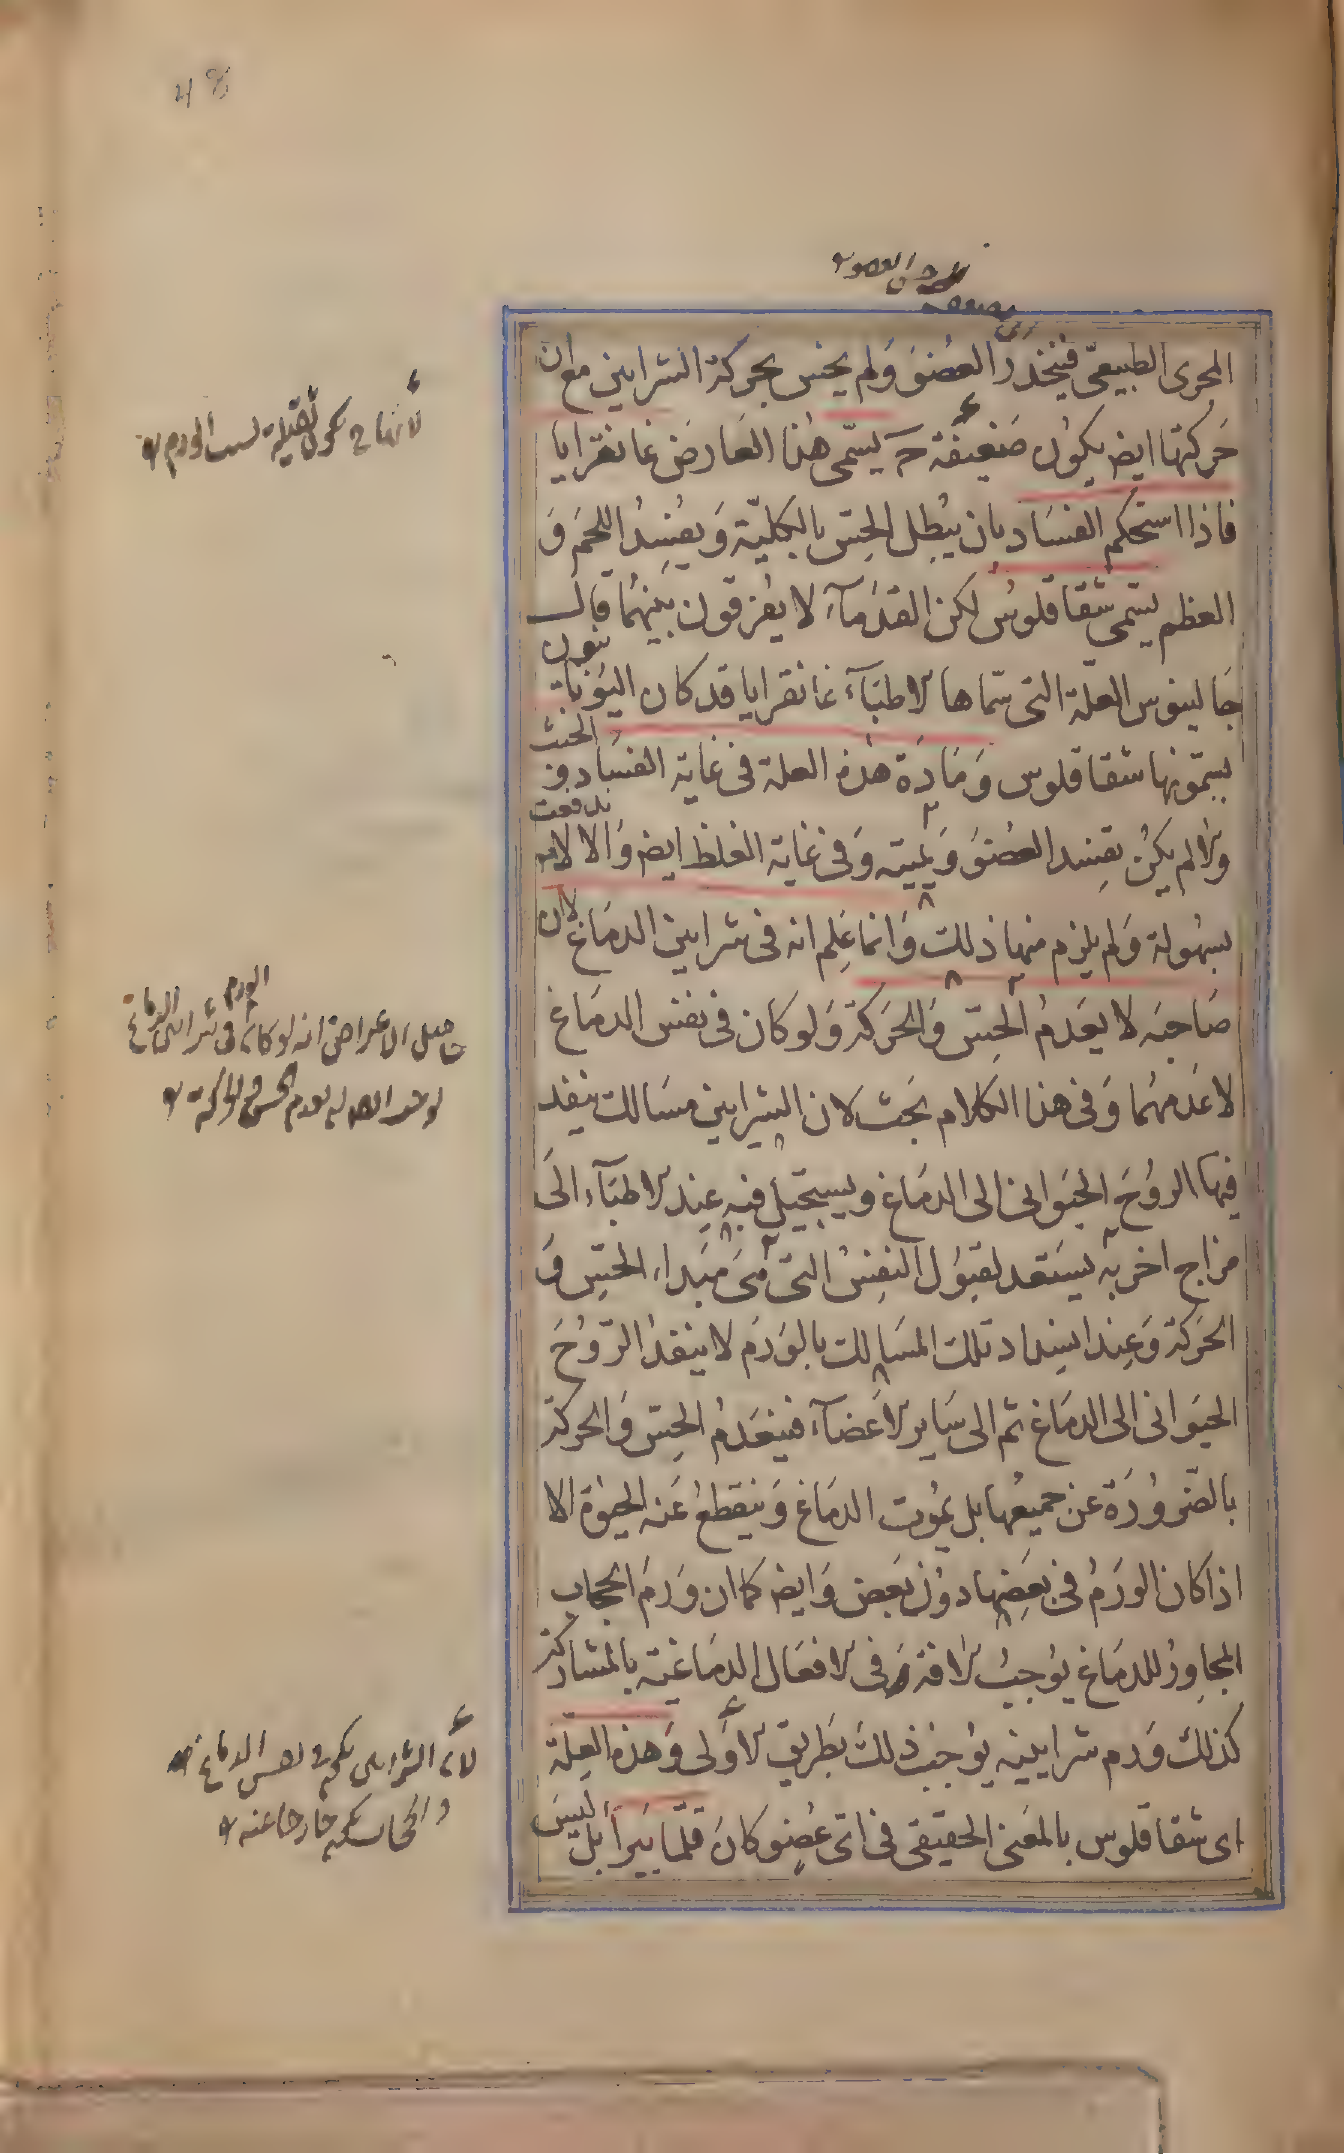 48
المجرى الطبيعى فيتخدر العضو ولم يحس بحركة الشرايين مع ان
حركتها ايض يكون ضعيفة ح يسمى هذا العارض غانغرايا
فاذا استحكم الفساد بان يبطل الحس بالكلية ويفسد اللحم و
العظم يسمى شقاقلوس لكن القدمآء لا يفرقون بينهما قال
جالينوس العلة التى سماها الاطبآء غانغرايا قد كان اليونانيون
يسمونها شقاقلوس ومادة هذه العلة فى غاية الفساد و الخبث
والا لم يكن يفسد العضو ويميته وفى غاية الغلظ ايض والا لاندفعت
بسهولة ولم يلزم منها ذلك وانما علم انه فى شرايين الدماغ لان
صاحبه لا يعدم الحس والحركة ولو كان فى نفس الدماغ
لا عدمهما وفى هذا الكلام بحث لان الشرايين مسالك ينفذ
فيها الروح الحيوانى الى الدماغ ويستحيل فيه عند الاطبآء الى
مزاج اخر به يستعد لقبول النفس التى هى مبداء الحس و
الحركة وعند انسداد تلك المسالك بالورم لا ينفذ الروح
الحيوانى الى الدماغ ثم الى ساير الاعضآء فينعدم الحس والحركة
بالضرورة عن جميعها بل يموت الدماغ وينقطع عنه الحيوة الا
اذا كان الورم فى بعضها دون بعض وايض كما ان ورم الحجاب
المجاور للدماغ يوجب الافة فى الافعال الدماغية بالمشاركة
كذلك ورم شرايينه يوجب ذلك بطريق الاولى وهذه العلة
اى شقاقلوس بالمعنى الحقيقى فى اى عضو كان قلما يبرأ بل ليس
لانها ح يكون ثقيلة بسبب الورم
حاصل الاعتراض انه لو كان الورم فى شرايين الدماغ
لان الشرايين يكون فى نفس الدماغ
والحجاب يكون خارجا عنه